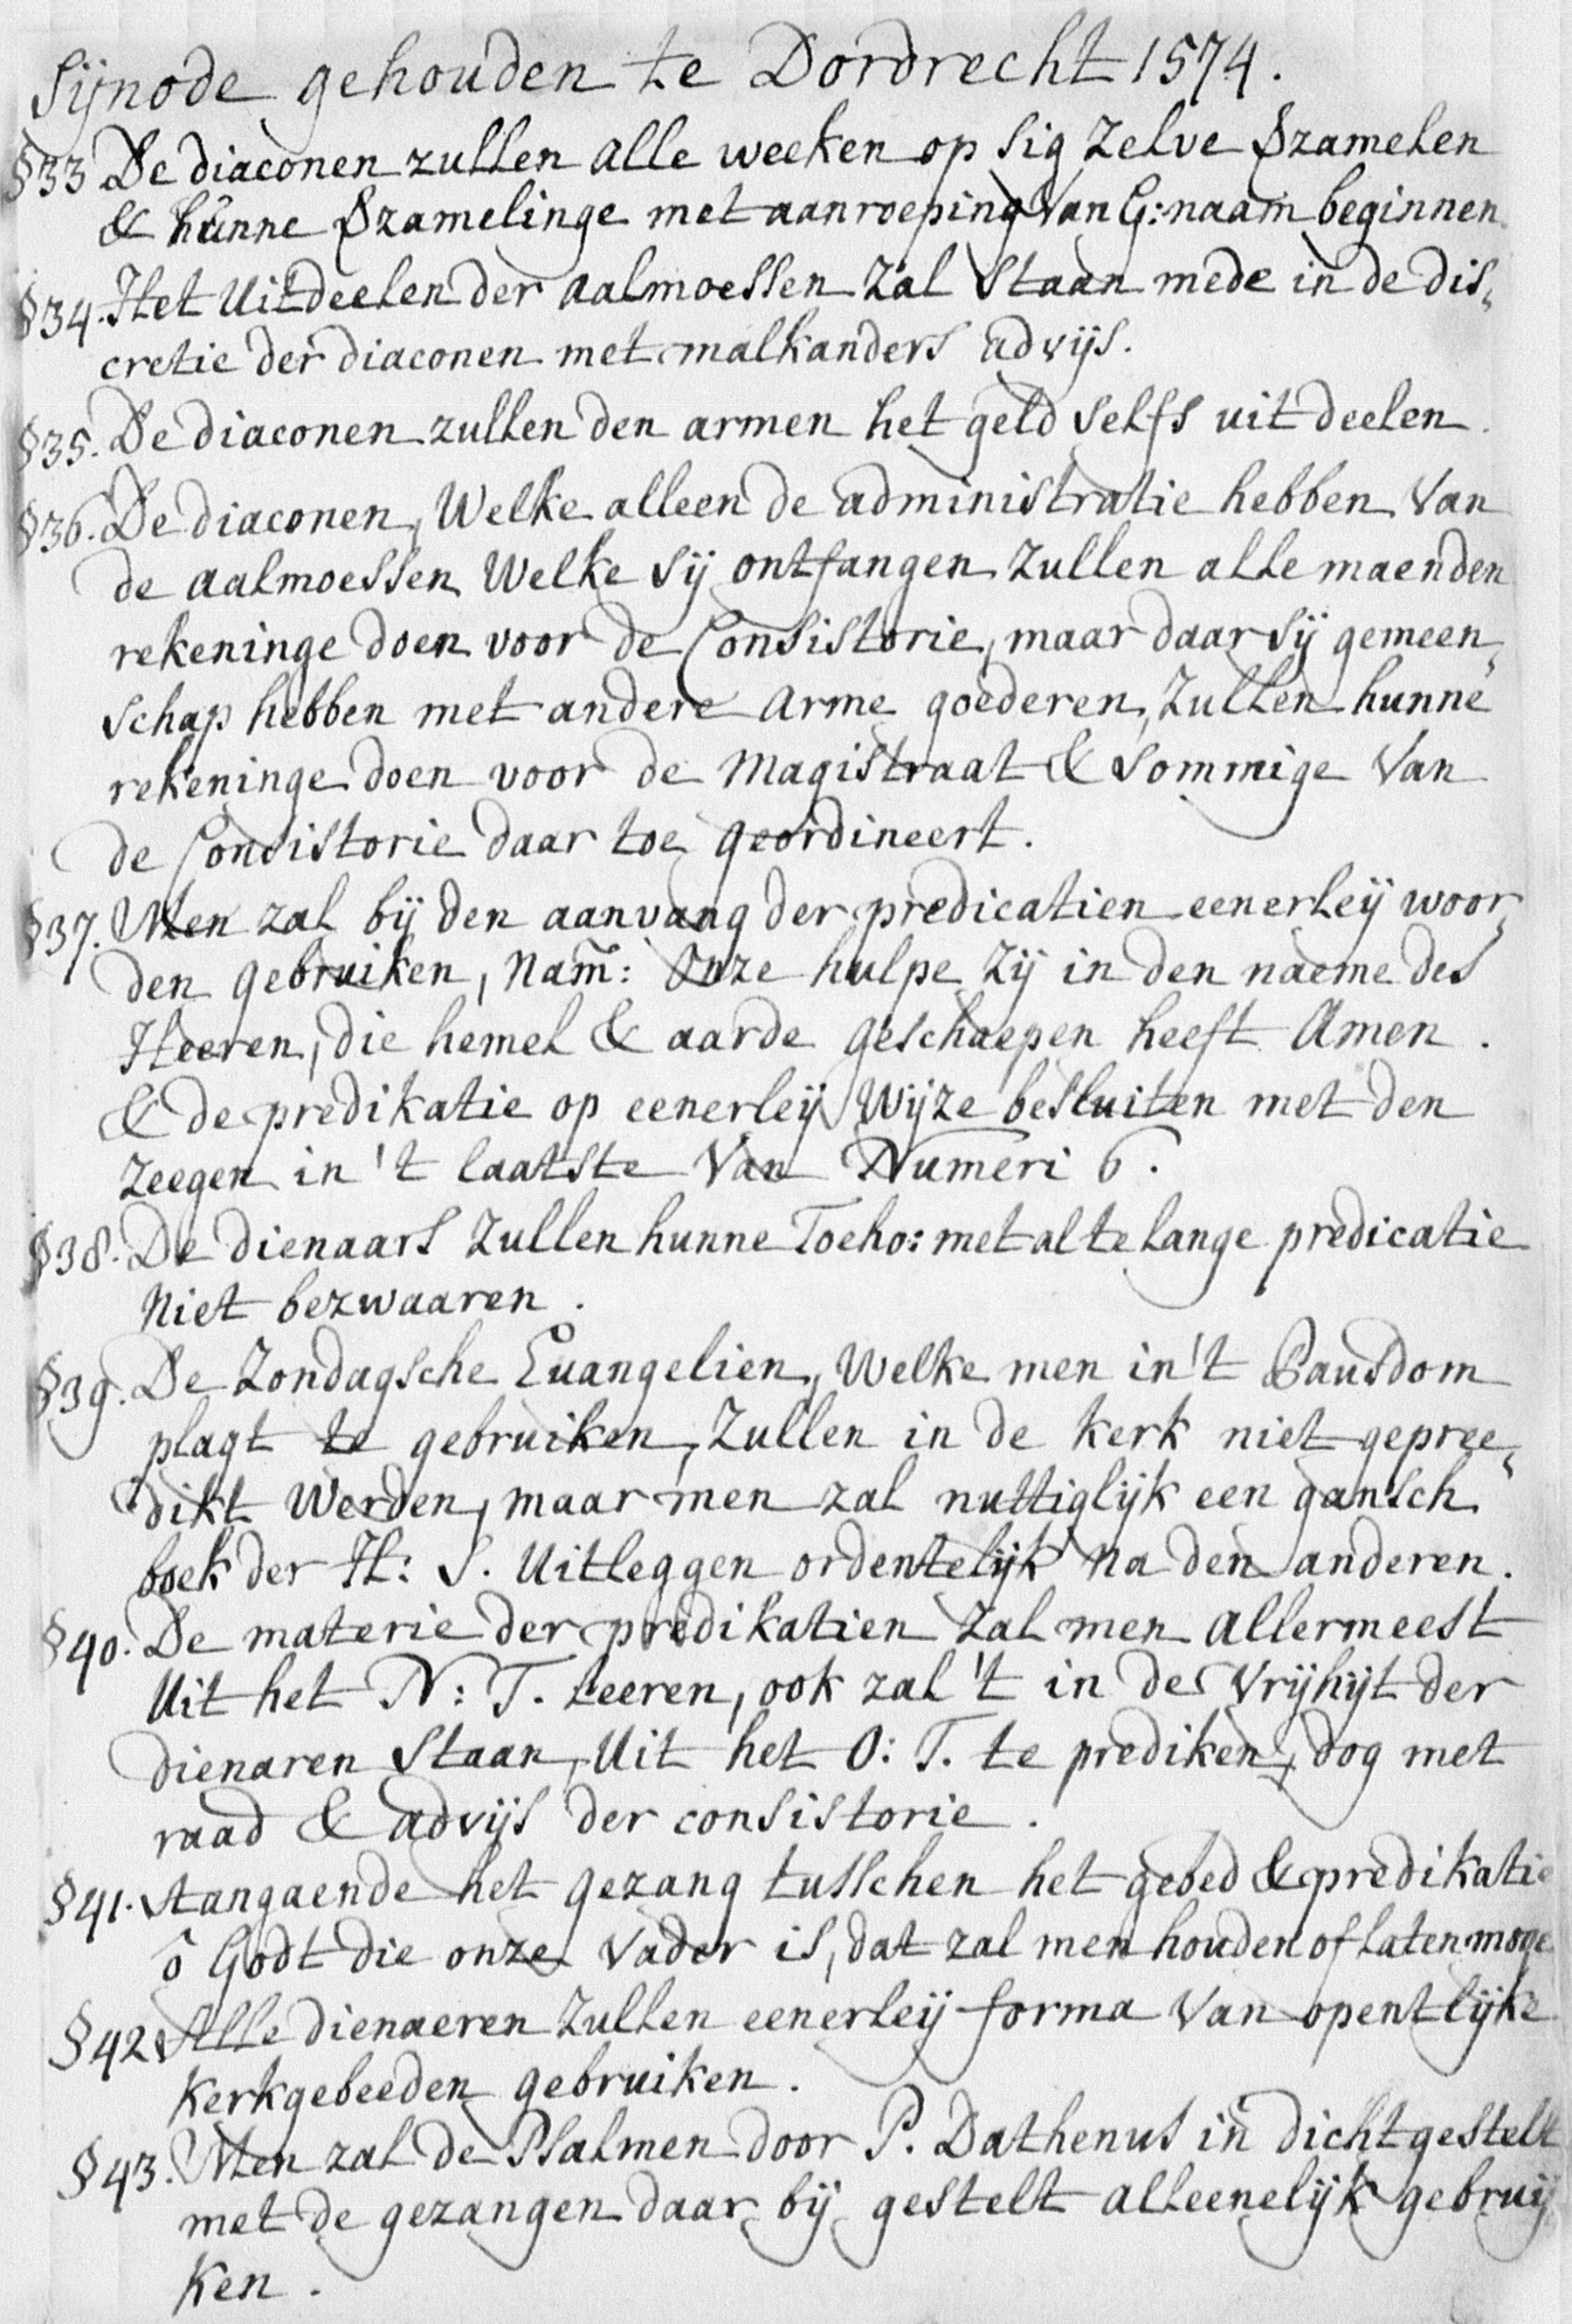 Sijnode gehouden te Dordrecht 1574.
§33 De diaconen zullen alle weeken op sig zelve vzamelen
& hunne vzamelinge met aanroeping van G: naam beginnen.
§34. Het uitdeelen der aalmoessen zal staan mede in de dis„
cretie der diaconen met malkanders advijs.
§35. De diaconen zullen den armen het geld selfs uit deelen.
§36. De diaconen, welke alleen de administratie hebben van
de aalmoessen welke sij ontfangen zullen alle maenden
rekeninge doen voor de Consistorie, maar daar sij gemeen„
schap hebben met andere arme goederen, zullen hunne
rekeninge doen voor de magistraat & sommige van
de Consistorie daar toe geordineert.
§37. Men zal bij den aanvang der predicatien eenerleij woor„
den gebruiken, nam̃: Onze hulpe zij in den naeme des
Heeren, die hemel & aarde geschaepen heeft Amen.
& de predikatie op eenerleij wijze besluiten met den
zeegen in 't laatste van Numeri 6.
§38. De dienaars zullen hunne Toeho: met al te lange predicatie
niet bezwaaren.
§39. De Zondagsche Euangelien, welke men in 't Pausdom
plagt te gebruiken, zullen in de kerk niet gepree„
dikt werden, maar men zal nuttiglijk een gansch
boek der H: S. uitleggen ordentelijk na den anderen.
§40. De materie der predikatien zal men allermeest
uit het N: T. leeren, ook zal 't in de vrijhijt der
dienaren staan, uit het O: T. te prediken, dog met
raad & advijs der consistorie.
§41. Aangaende het gezang tusschen het gebed & predikatie
ô Godt die onze vader is, dat zal men houden of laten moge
§42 Alle dienaeren zullen eenerleij forma van opentlijke
kerkgebeeden gebruiken.
§43. Men zal de Psalmen door P. Dathenus in dicht gestelt
met de gezangen daar bij gestelt alleenelijk gebruij
ken.